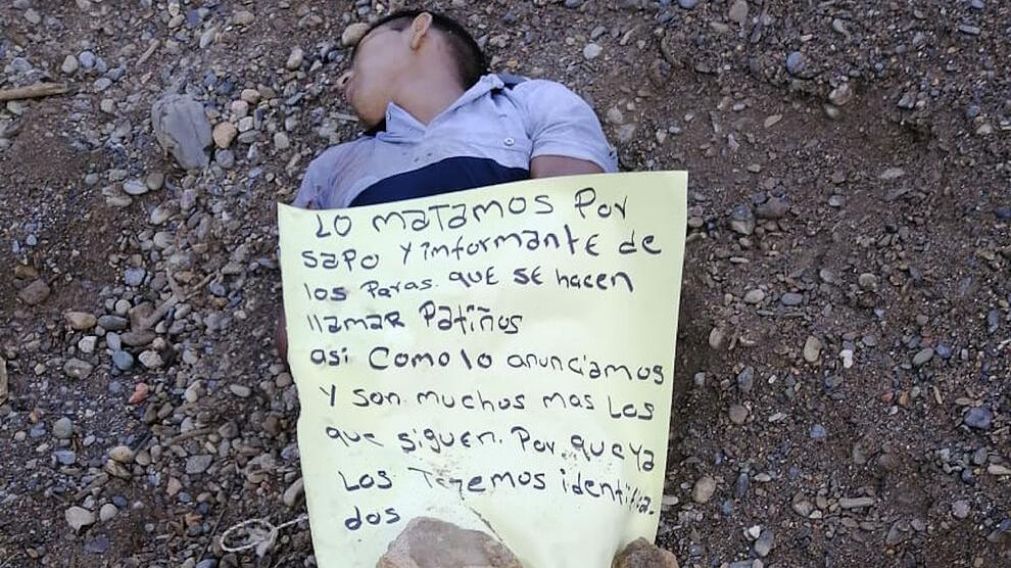 LO MATAMOS POR
SAPO Y informante de
los Paras. QUE SE hacen
llamar Patiños
asi Como lo anunciamos
Y son muchos mas Los
que siguen. Por que ya
Los Tenemos identifica.
dos